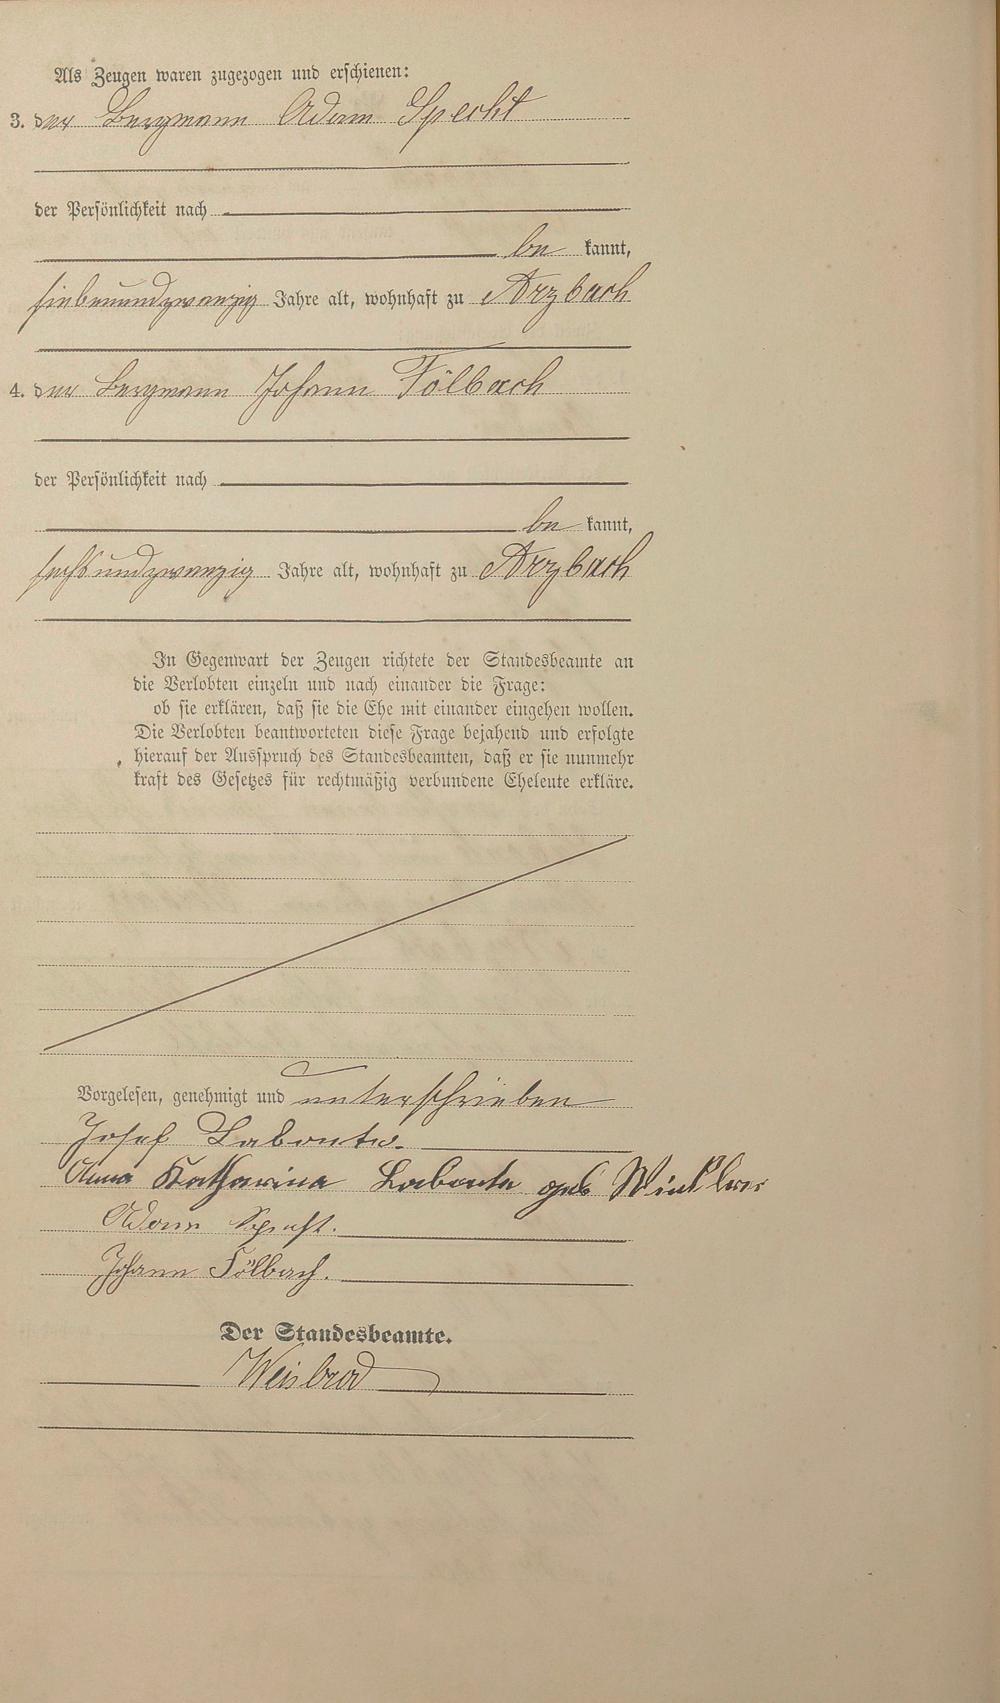 Als Zeugen waren zugezogen und erschienen:
3. der Bergmann Adam Specht
der Persönlichkeit nach
be kannt,
siebenundzwanzig Jahre alt, wohnhaft zu Arzbach
4. der Bergmann Johann Fölbach
der Persönlichkeit nach
be kannt,
sechsundzwanzig Jahre alt, wohnhaft zu Arzbach
In Gegenwart der Zeugen richtete der Standesbeamte an
die Verlobten einzeln und nach einander die Frage:
ob sie erklären, daß sie die Ehe mit einander eingehen wollen.
Die Verlobten beantworteten diese Frage bejahend und erfolgte
hierauf der Ausspruch des Standesbeamten, daß er sie nunmehr
kraft des Gesetzes für rechtmäßig verbundene Eheleute erkläre.
Vorgelesen, genehmigt und unterschrieben
Josef Labonte.
Anna Katharina Labonte geb Winkler
Adam Specht.
Johann Fölbach.
Der Standesbeamte.
Weisbrod